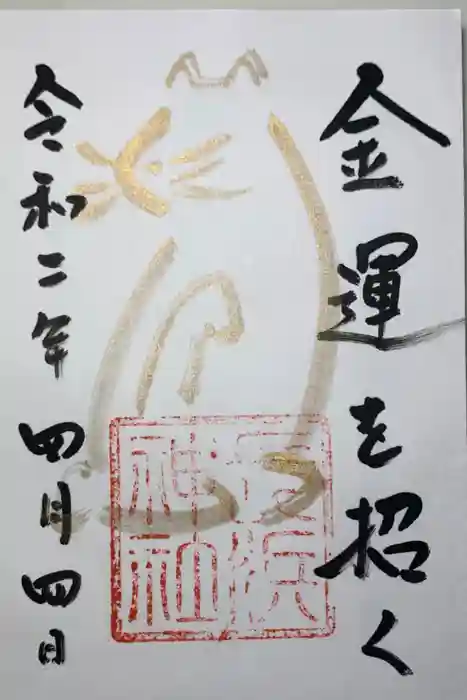 金運を招く
神社
令和二年四月四日